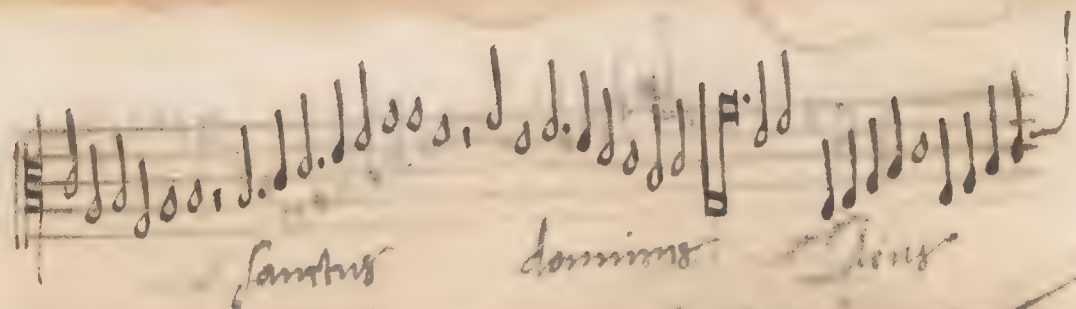 Sanctus dominus deus